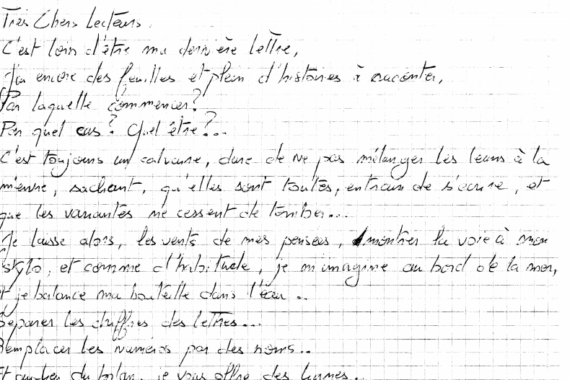 Très Chers Lecteurs.
C'est loin d'être ma dernière lettre,
J'ai encore des feuilles et plein d'histoires à raconter,
Par laquelle commencer?
Par quel cas? Quel être?...
C'est toujours un calvaire, dure de ne pas mélanger les leurs à la
mienne, sachant, qu'elles sont toutes, entrain de s'écrire, et
que les variantes ne cessent de tomber...
Je laisse alors, les vents de mes pensées, montrer la voie à mon
stylo, et comme d'habitude, je m'imagine au bord de la mer,
et je balance ma bouteille dans l'eau...
Séparer les chiffres des lettres...
Remplacer les numéros par des noms...
du bilan, je vous offre des larmes.